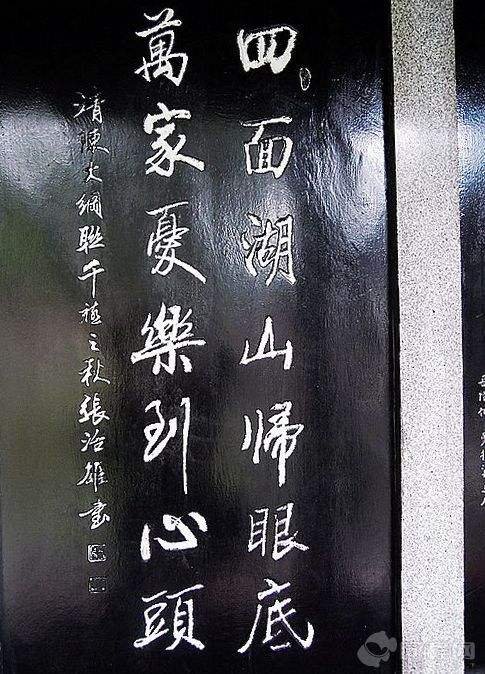 四面湖山歸眼底
萬家憂樂到心頭
清陳大綱聯千禧之秋張治雄書